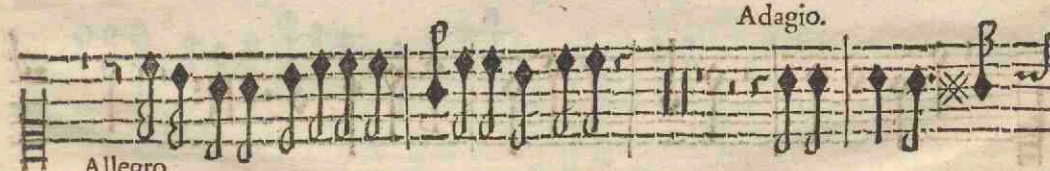 Adagio.
Allegro